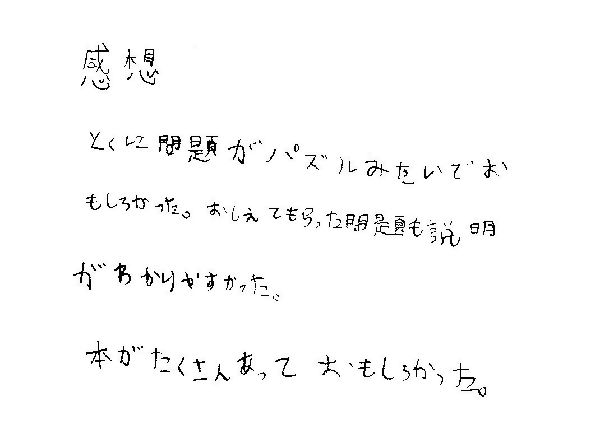 感想
とくに問題がパズルみたいでお
もしろかった。おしえてもらった問題も説明
がわかりやすかった。
本がたくさんあって おもしろかった。